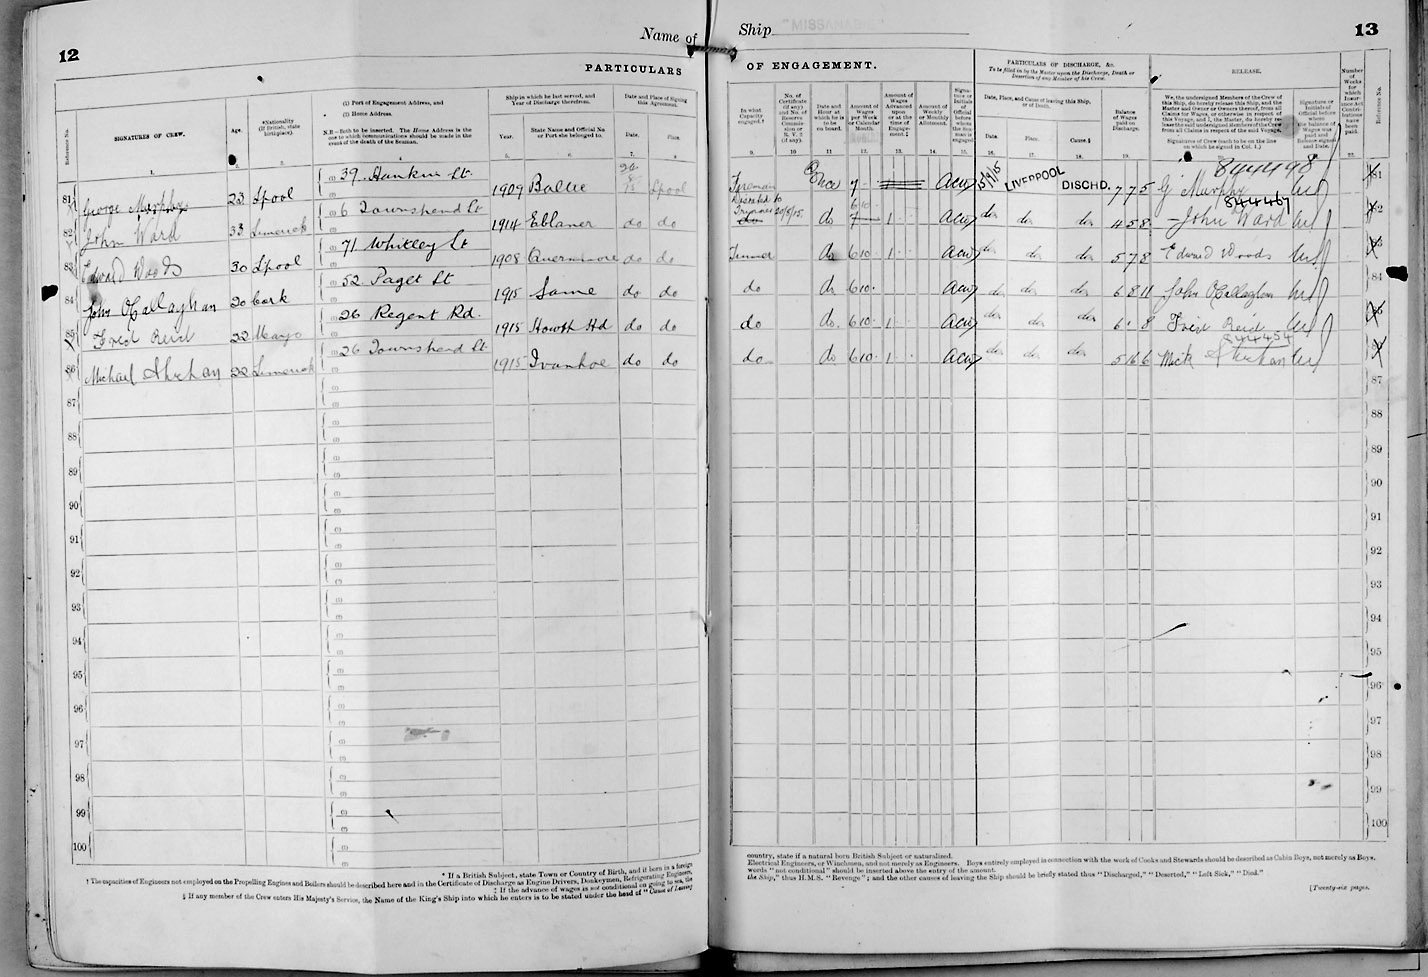 12
Name of
PARTICULARS
Reference No.
SIGNATURES OF CREW.
Age.
Nationality (If British, state birthplace).
(1) Port of Engagement Address, and
(2) Home Address.
N.B.—Both to be inserted. The Home Address is the one to which communications should be made in the event of the death of the Seaman.
Ship in which he last served, and Year of Discharge therefrom.
Year.
State Name and Official No or Port she belonged to.
Date and Place of Signing this Agreement.
Date.
Place.
81 George Murphy 23 Lpool 39 1909 Baltic Lpool
82 John Ward 33 Limerick 6 Townshend St 1914 Eblaner do do
83 Edward Woods 30 Lpool 71 Whitley St 1908 do do
84 John O'Callaghan 20 Cork 52 Paget St 1915 Same do do
85 Fred Reid 22 Mayo 26 Regent Rd. 1915 Howth Hd do do
86 Michael 22 Limerick 26 Townshend St 1915 Ivanhoe do do
87
88
89
90
91
92
93
94
95
96
97
98
99
100
* If a British Subject, state Town or Country of Birth, and if born in a foreign
† The capacities of Engineers not employed on the Propelling Engines and Boilers should be described here and in the Certificate of Discharge as Engine Drivers, Donkeymen, Refrigerating Engineers,
‡ If the advance of wages is not conditional on going to sea, the
§ If any member of the Crew enters His Majesty's Service, the Name of the King's Ship into which he enters is to be stated under the head of "Cause of Leaving
"MISSANABIE"
Ship
13
OF ENGAGEMENT.
PARTICULARS OF DISCHARGE, &c.
To be filled in by the Master upon the Discharge, Death or Desertion of any Member of his Crew.
RELEASE.
In what Capacity engaged.†
No. of Certificate (if any) and No. of Reserve Commission or R.V.2 (if any).
Date and Hour at which he is to be on board.
Amount of Wages per Week or Calendar Month.
Amount of Wages Advanced upon or at the time of Engagement.‡
Amount of Weekly or Monthly Allotment.
Date, Place, and Cause of leaving this Ship, or of Death.
Date.
Place.
Cause.§
Balance of Wages paid on Discharge.
We, the undersigned Members of the Crew of this Ship, do hereby release this Ship, and the Master and Owner or Owners thereof, from all Claims for Wages, or otherwise in respect of this Voyage, and I, the Master, do hereby release the said undersigned Members of the Crew from all Claims in respect of the said Voyage.
Signatures of Crew (each to be on the line on which he signed in Col. 1.)
Signature or Initials of Official before whom the balance of Wages was paid and Release signed and Date.
Number of Weeks for which Insurance Act Contributions have been paid.
Reference No.
844498
Fireman Once 7 LIVERPOOL DISCHD. 7 7 5 G Murphy 81
844467
do do 7 1 do do do 4 5 8 John Ward 82
do 6 10 1 do do do 5 7 8 Edward Woods
do do 6 10 do do do 6 8 11 John O'Callaghan 84
do do 6 10 1 do do do 6 1 8 Fred Reid
844454
do do 6 10 1 do do do 5 16 6 Mick
87
88
89
90
91
92
93
94
95
96
97
98
99
100
country, state if a natural born British Subject or naturalized.
Electrical Engineers, or Winchmen, and not merely as Engineers. Boys entirely employed in connection with the work of Cooks and Stewards should be described as Cabin Boys, not merely as Boys.
words "not conditional" should be inserted above the entry of the amount.
the Ship," thus H.M.S. "Revenge"; and the other causes of leaving the Ship should be briefly stated thus "Discharged," "Deserted," "Left Sick," "Died."
[Twenty-six pages.